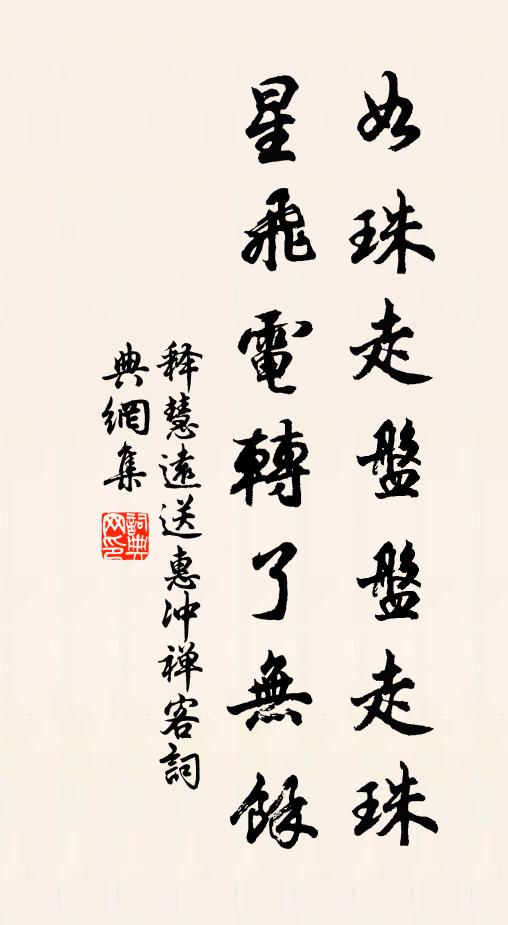 如珠走盤盤走珠
星飛電轉了無餘
释慧遠送惠沖禅客詞
典網集
詞典網印